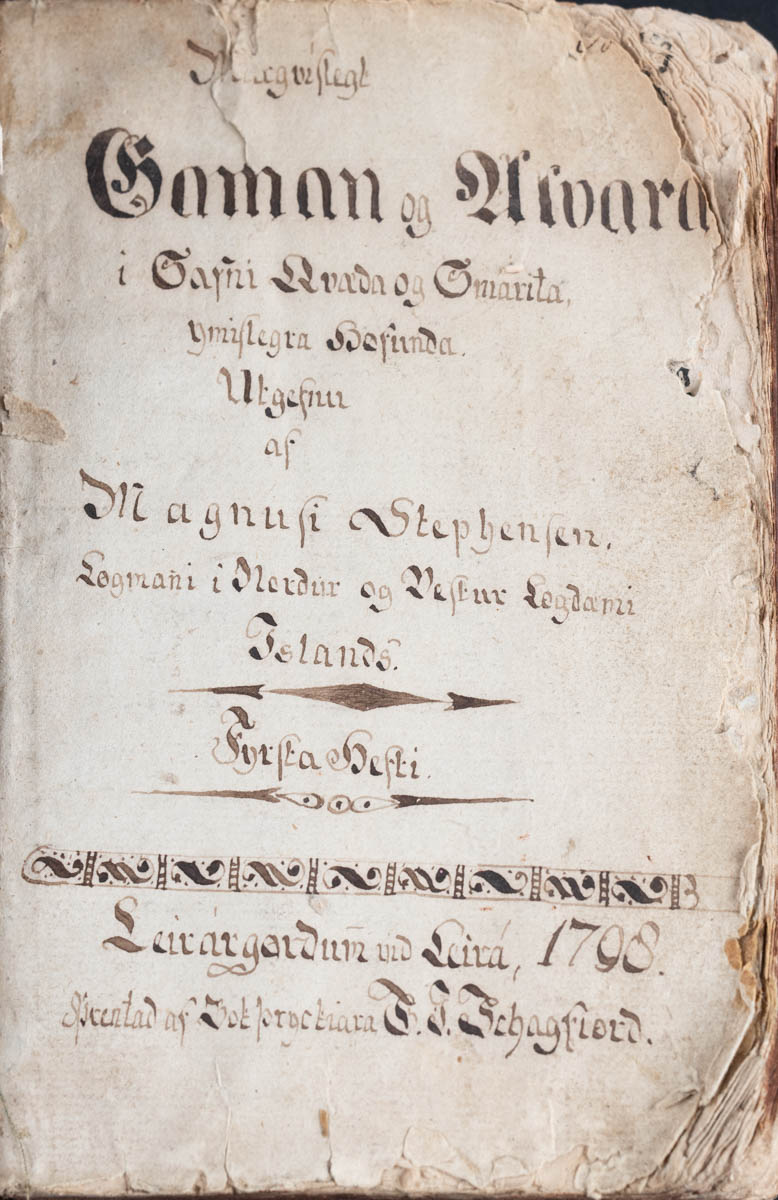 Margvíslegt
Gaman og Alvara
i Safn̄i Qvæda og Smārita,
ymislegra Høfunda.
Utgefnu
af
Magnusi Stephensen,
Løgman̄i i Nordur og Vestur Løgdæmi
Islands.
Fyrsta Hefti.
Leirárgørdum̄ vid Leirá, 1798.
Prentad af Bokþryckiara G. J. Schagfiord.